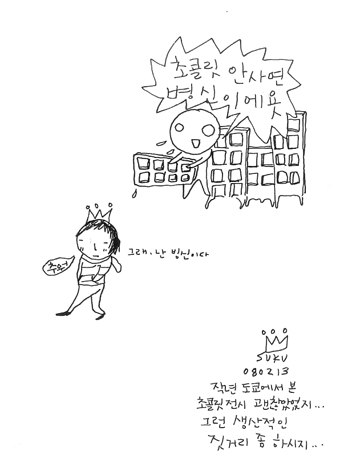 초콜릿 안사면
병신이에욧
그래, 난 빙신이다
추워
SUKU
080213
작년 도쿄에서 본
초콜릿전시 괜찮았었지...
그런 생산적인
짓거리 좀 하시지...